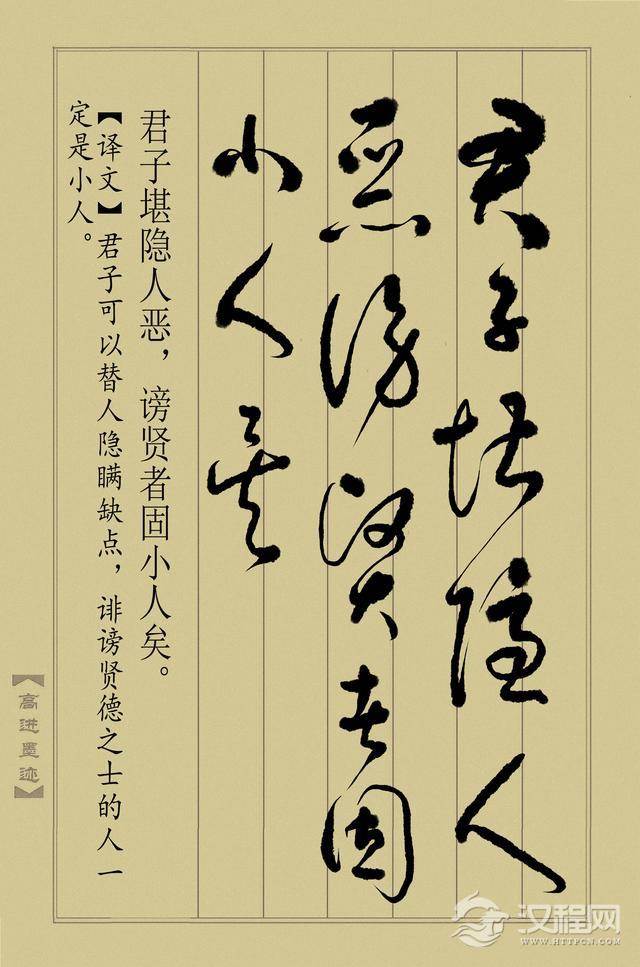 君子堪隐人
恶谤贤者固
小人矣
君子堪隐人恶，谤贤者固小人矣。
【译文】君子可以替人隐瞒缺点，诽谤贤德之士的人一
定是小人。
【高进墨迹】
汉程网
WWW.HTTPCN.COM